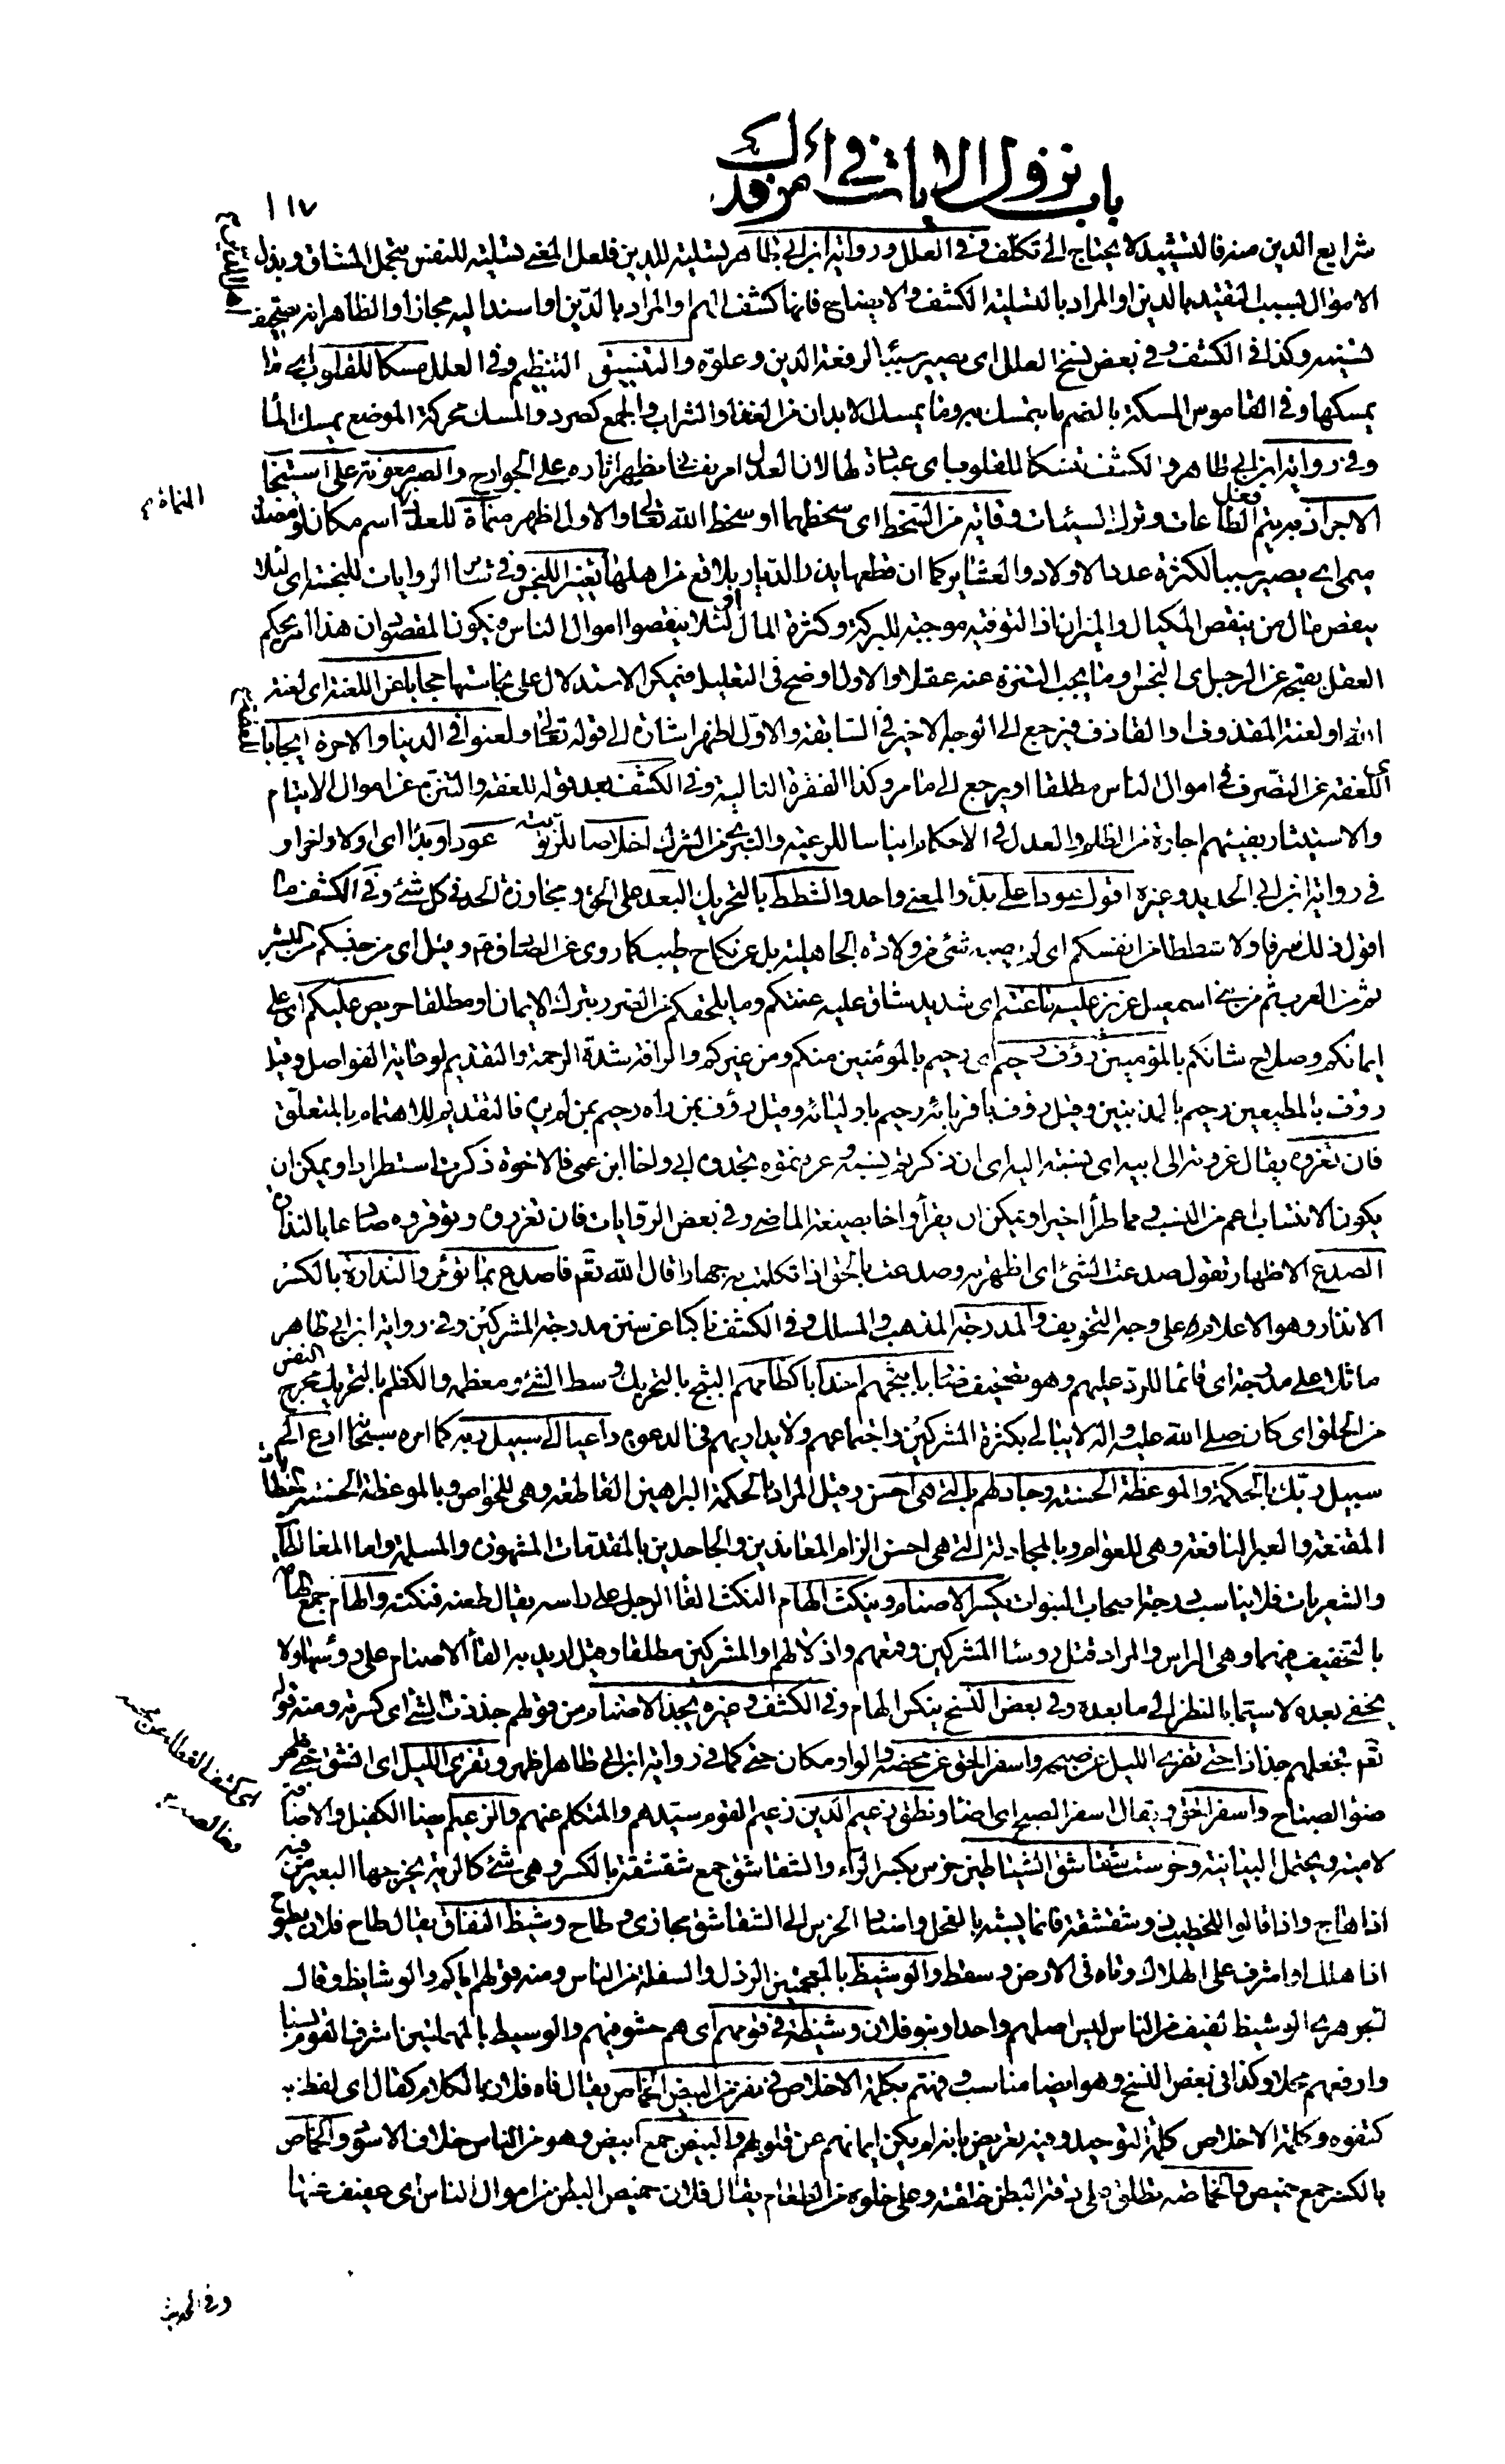 باب نزول الايات في امر فدك
١١٧
شرايع الدين منه فالتشييد لا يحتاج الى تكلف وفي العلل ورواية ابن ابي طاهر تسلية للدين فلعل المعنى تسلية للنفس بتحمل المشاق وبذل
الاموال بسبب التقيد بالدين او المراد بالتسلية الكشف والايضاح فانها كشف الهم والمراد بالدين او اسند اليه مجازا والظاهر انه تصحيف
تشييد وكذا في الكشف وفي بعض نسخ العلل اى يصير سببا لرفعة الدين وعلوه والتنسيق التنظيم وفي العلل مسكا للقلوب اى ما
يمسكها وفي القاموس المسكة بالضم ما يتمسك به وما يمسك الابدان من الغذاء والشراب والجمع كصرد والمسك محركة الموضع يمسك الماء
وفي رواية ابن ابي طاهر والكشف تنسكا للقلوب اى عبادة لها لان العدل امر نفساني يظهر اثاره على الجوارح والصبر معونة على استيجاب
الاجر اذ به يتم فعل الطاعات وترك السيئات وقاية من السخط اى سخطهما او سخط الله تعالى والاول اظهر منماة للعدد اسم مكان او مصدر
ميمى اى يصير سببا لكثرة عدد الاولاد والعشاير كما ان قطعها يذر الديار بلاقع من اهلها تغييرا للبخس وفي سائر الروايات للبخسة اى لئلا
ينقص مال من ينقص المكيال والميزان اذ التوفية موجبة للبركة وكثرة المال او لئلا ينقصوا اموال الناس فيكون المقصود ان هذا امر يحكم
العقل بقبحه عن الرجس اى النجس او ما يجب التنزه عنه عقلا والاول اوضح في التعليل فيمكن الاستدلال على نجاستها حجابا عن اللعنة اى لعنة
الله او لعنة المقذوف او القاذف فيرجع الى الوجه الاخير في السابقة والاول اظهر اشارة الى قوله تعالى ولعنوا في الدنيا والاخرة ايجابا
للعفة اى للعفة عن التصرف في اموال الناس مطلقا او يرجع الى ما مر وكذا الفقرة التالية وفي الكشف بعد قوله للعفة والتنزه عن اموال الايتام
والاستيثار بفيئهم اجارة من الظلم والعدل في الاحكام ايناسا للرعية والتبري من الشرك اخلاصا للربوبية عودا وبدءا اى اولا واخرا و
في رواية ابن ابي الحديد وغيره اقول عودا على بدء والمعنى واحد والشطط بالتحريك البعد عن الحق ومجاوزة الحد في كل شئ وفي الكشف ما
اقول ذلك سرفا ولا شططا من انفسكم اى لم يصبه شئ من ولادة الجاهلية بل عن نكاح طيب كما روى عن الصادق ع وقيل اى من جنسكم من البشر
ثم من العرب ثم من بني اسمعيل عزيز عليه ما عنتم اى شديد شاق عليه عنتكم وما يلحقكم من الضرر بترك الايمان او مطلقا حريص عليكم اى على
ايمانكم وصلاح شانكم بالمؤمنين رؤف رحيم اى رحيم بالمؤمنين منكم ومن غيركم والرافة شدة الرحمة والتقديم لرعاية الفواصل وقيل
رؤف بالمطيعين رحيم بالمذنبين وقيل رؤف باقربائه رحيم باوليائه وقيل رؤف بمن راه رحيم بمن لم يره فالتقديم للاهتمام بالمتعلق
فان تعزوه يقال عزوته الى ابيه اى نسبته اليه اى ان ذكرتم نسبه وعرفتموه تجدوه ابي واخا ابن عمى فالاخوة ذكرت استطرادا ويمكن ان
يكون الانتساب اعم من النسب ومما طرأ اخيرا ويمكن ان يقرأ واخا بصيغة الماضي وفي بعض الروايات فان تعزروه وتوقروه صادعا بالنذارة
الصدع الاظهار تقول صدعت الشئ اى اظهرته وصدعت بالحق اذا تكلمت به جهارا قال الله تعم فاصدع بما تؤمر والنذارة بالكسر
الانذار وهو الاعلام على وجه التخويف والمدرجة المذهب والمسلك وفي الكشف ناكبا عن سنن مدرجة المشركين وفي رواية ابن ابي طاهر
ماثلا على مدرجة اى قائما للرد عليهم وهو تصحيف ضاربا ثبجهم اخذا باكظامهم الثبج بالتحريك وسط الشئ ومعظمه والكظم بالتحريك مخرج النفس
من الحلق اى كان صلى الله عليه واله لا يبالى بكثرة المشركين واجتماعهم ولا يداريهم في الدعوة داعيا الى سبيل ربه كما امره سبحانه ادع الى
سبيل ربك بالحكمة والموعظة الحسنة وجادلهم بالتي هي احسن وقيل المراد بالحكمة البراهين القاطعة وهي للخواص وبالموعظة الحسنة الخطابات
المقنعة والعبر النافعة وهي للعوام وبالمجادلة التي هي احسن الزام المعاندين والجاحدين بالمقدمات المشهورة والمسلمة واما المغالطات
والشعريات فلا يناسب درجة اصحاب النبوات يكسر الاصنام وينكت الهام النكت القاء الرجل على راسه يقال طعنه فنكته والهام جمع الهامة
بالتخفيف فيهما وهي الراس والمراد قتل رؤساء المشركين وقمعهم واذلالهم او المشركين مطلقا وقيل اريد به القاء الاصنام على رؤسها ولا
يخفى بعده لا سيما بالنظر الى ما بعده وفي بعض النسخ ينكس الهام وفي الكشف وغيره يجذ الاصنام من قولهم جذذت الشئ اى كسرته ومنه قوله
تعم فجعلهم جذاذا حتى تفرى الليل عن صبحه واسفر الحق عن محضه والواو مكان حتى كما في رواية ابن ابي طاهر اظهر وتفرى الليل اى انشق حتى ظهر
ضوء الصباح واسفر الحق ويقال اسفر الصبح اى اضاء ونطق زعيم الدين زعيم القوم سيدهم والمتكلم عنهم والزعيم ايضا الكفيل والاضافة
لامية ويحتمل البيانية وخرست شقاشق الشياطين خرس بكسر الراء والشقاشق جمع شقشقة بالكسر وهي شئ كالرية يخرجها البعير من فيه
اذا هاج واذا قالوا للخطيب ذو شقشقة فانما يشبه بالفحل واسناد الخرس الى الشقاشق مجازى وطاح وشيظ النفاق يقال طاح فلان يطوح
اذا هلك او اشرف على الهلاك وتاه في الارض وسقط والوشيظ بالمعجمتين الرذل والسفلة من الناس ومنه قولهم اياكم والوشايظ وقال
الجوهرى الوشيظ لفيف من الناس ليس اصلهم واحدا وبنو فلان وشيظة في قومهم اى هم حشو فيهم والوسيط بالمهملتين اشرف القوم نسبا
وارفعهم محلا وكذا في بعض النسخ وهو ايضا مناسب وفهتم بكلمة الاخلاص في نفر من البيض الخماص يقال فاه فلان بالكلام كقال اى لفظ به
كتفوه وكلمة الاخلاص كلمة التوحيد وفيه تعريض بانه لم يكن ايمانهم عن قلوبهم والبيض جمع ابيض وهو من الناس خلاف الاسود والخماص
بالكسر جمع خميص والخماصة تطلق على دقة البطن خلقة وعلى خلوه من الطعام يقال فلان خميص البطن من اموال الناس اى عفيف عنها
المنماة
وفي الحديث